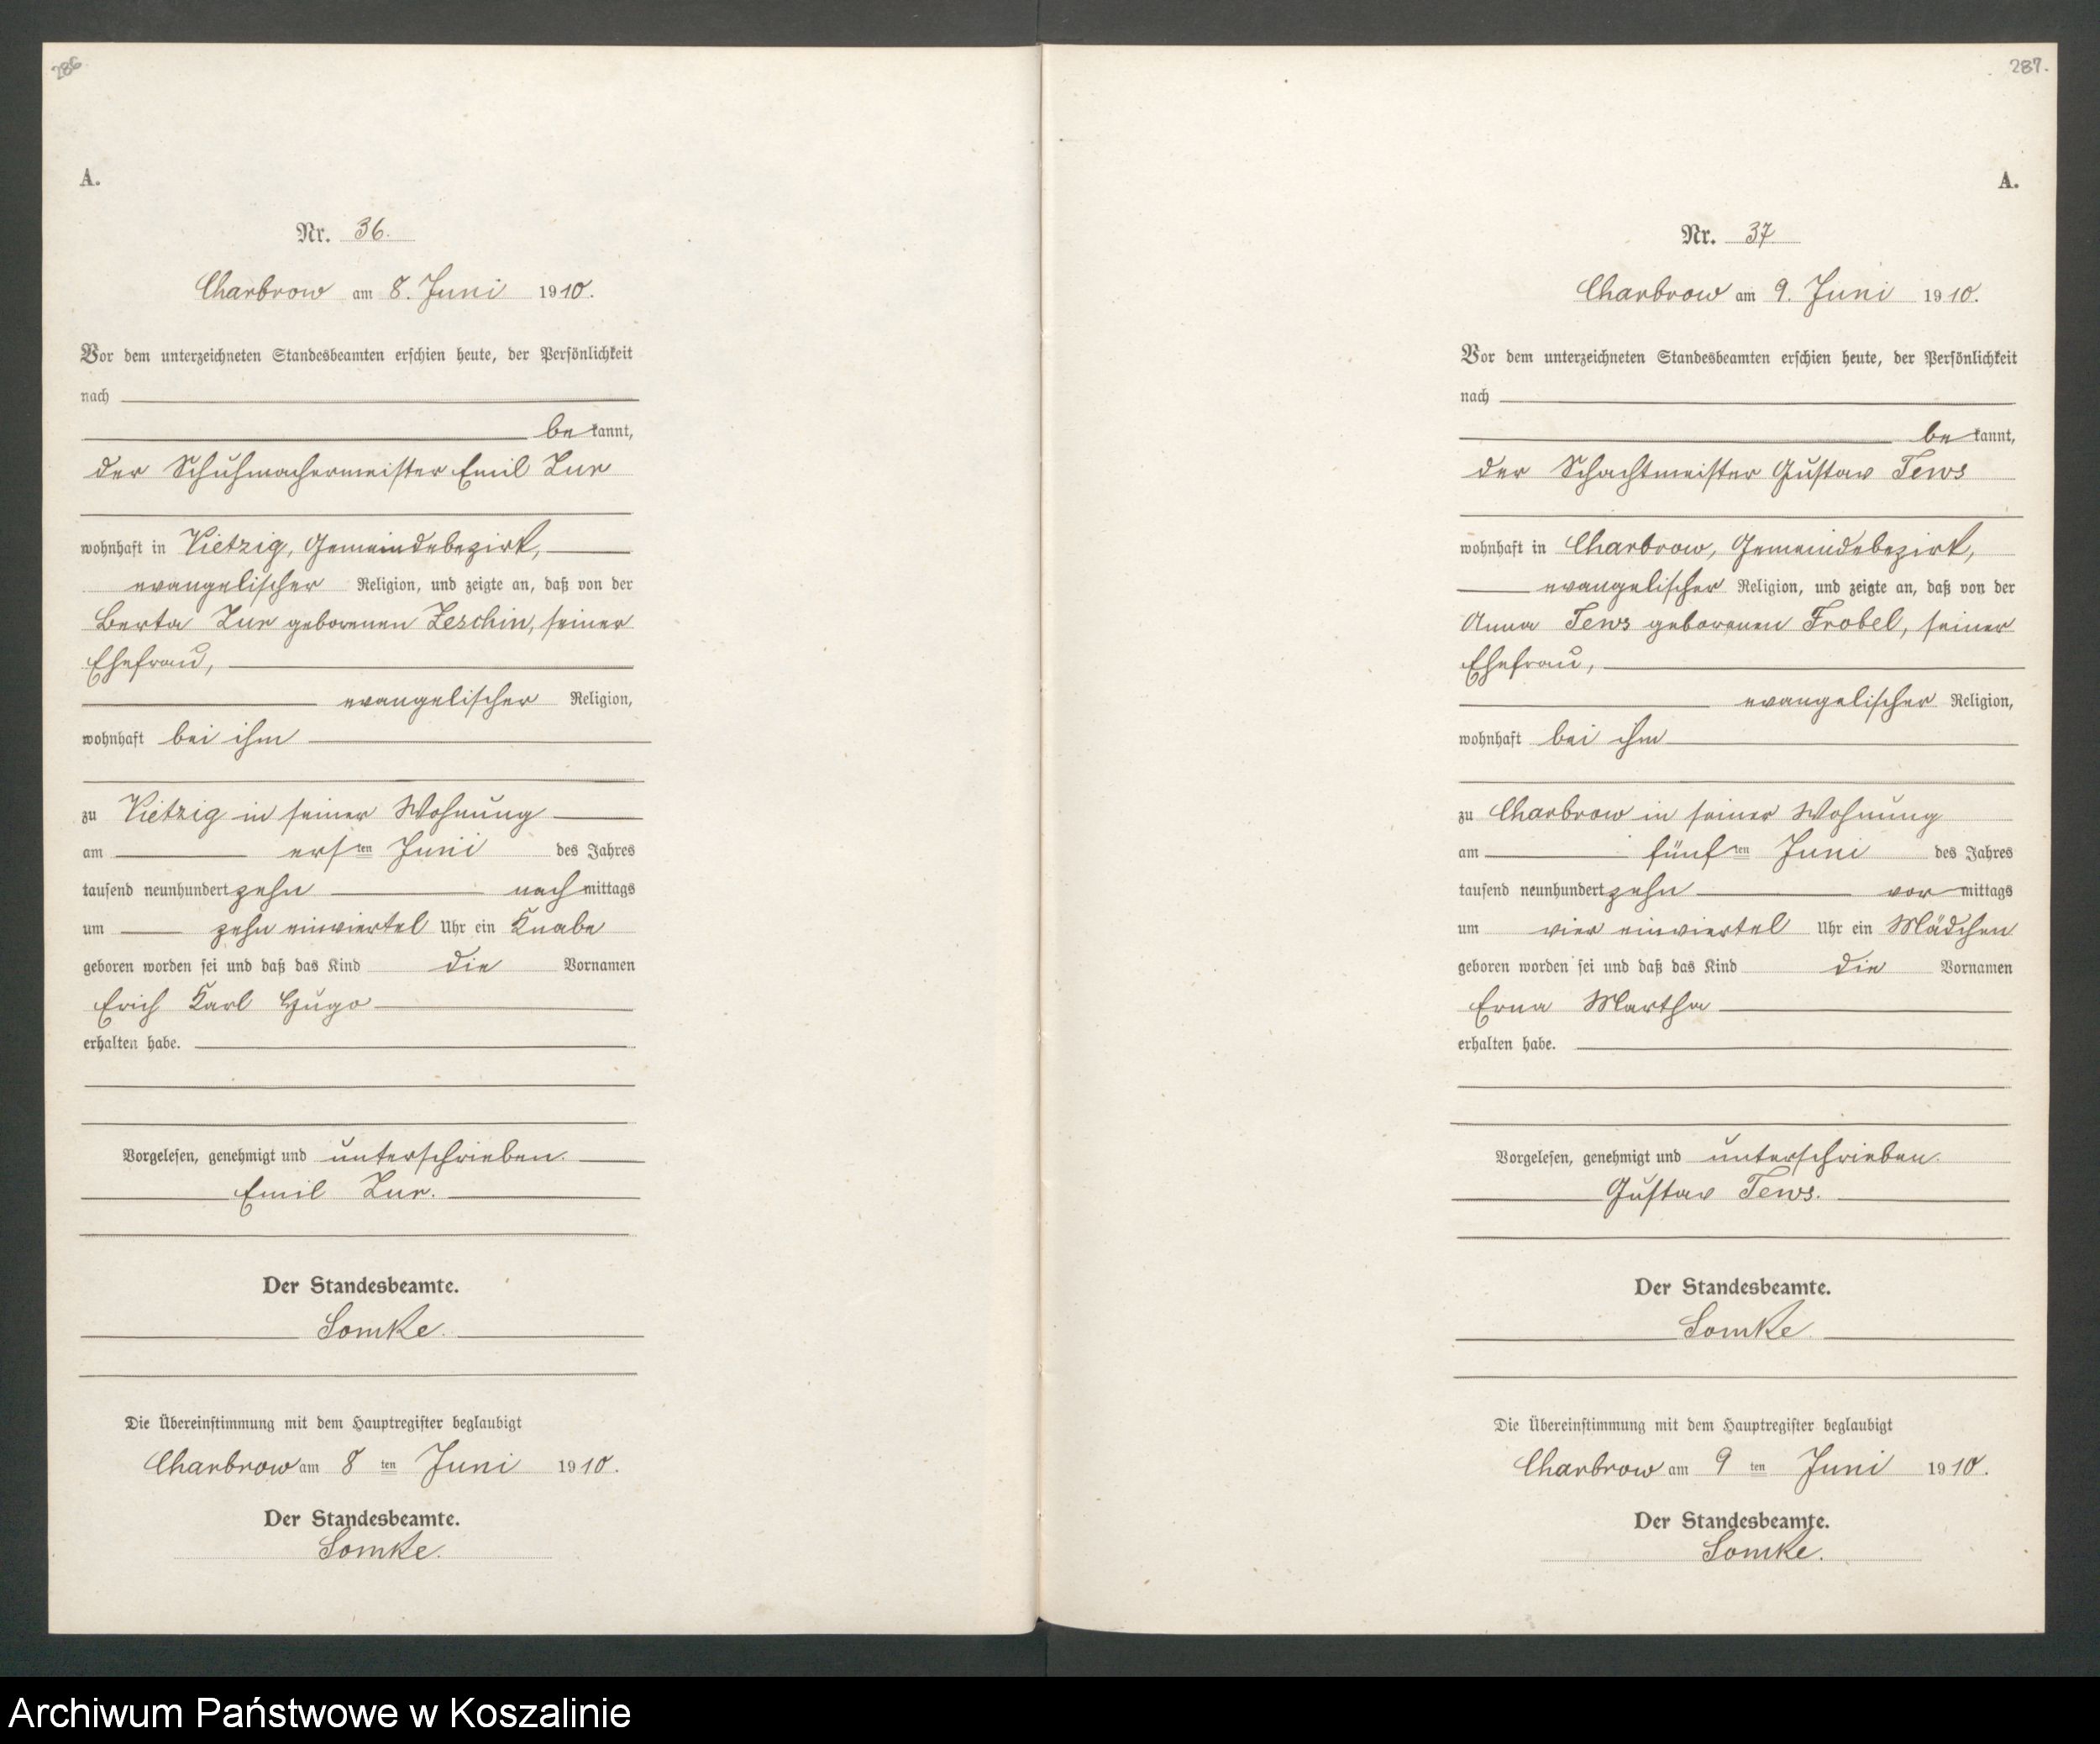 286
A.
Nr. 36.
Charbrow am 8. Juni 1910.
Vor dem unterzeichneten Standesbeamten erschien heute, der Persönlichkeit
nach
be kannt,
der Schuhmachermeister Emil
wohnhaft in Vietzig, Gemeindebezirk,
evangelischer Religion, und zeigte an, daß von der
Berta geborenen Zeschin, seiner
Ehefrau,
evangelischer Religion,
wohnhaft bei ihm
zu Vietzig in seiner Wohnung
am ersten Juni des Jahres
tausend neunhundert zehn nach mittags
um zehn einviertel Uhr ein Knabe
geboren worden sei und daß das Kind die Vornamen
Erich Karl Hugo
erhalten habe.
Vorgelesen, genehmigt und unterschrieben.
Emil
Der Standesbeamte.
Lomke.
Die Übereinstimmung mit dem Hauptregister beglaubigt
Charbrow am 8 ten Juni 1910.
Der Standesbeamte.
Lomke.
287.
A.
Nr. 37
Charbrow am 9. Juni 1910.
Vor dem unterzeichneten Standesbeamten erschien heute, der Persönlichkeit
nach
be kannt,
der Schachtmeister Gustav Tews
wohnhaft in Charbrow, Gemeindebezirk,
evangelischer Religion, und zeigte an, daß von der
Anna Tews geborenen Frobel, seiner
Ehefrau,
evangelischer Religion,
wohnhaft bei ihm
zu Charbrow in seiner Wohnung
am fünften Juni des Jahres
tausend neunhundert zehn vor mittags
um vier einviertel Uhr ein Mädchen
geboren worden sei und daß das Kind die Vornamen
Erna Martha
erhalten habe.
Vorgelesen, genehmigt und unterschrieben.
Gustav Tews.
Der Standesbeamte.
Lomke
Die Übereinstimmung mit dem Hauptregister beglaubigt
Charbrow am 9 ten Juni 1910.
Der Standesbeamte.
Lomke.
Archiwum Państwowe w Koszalinie